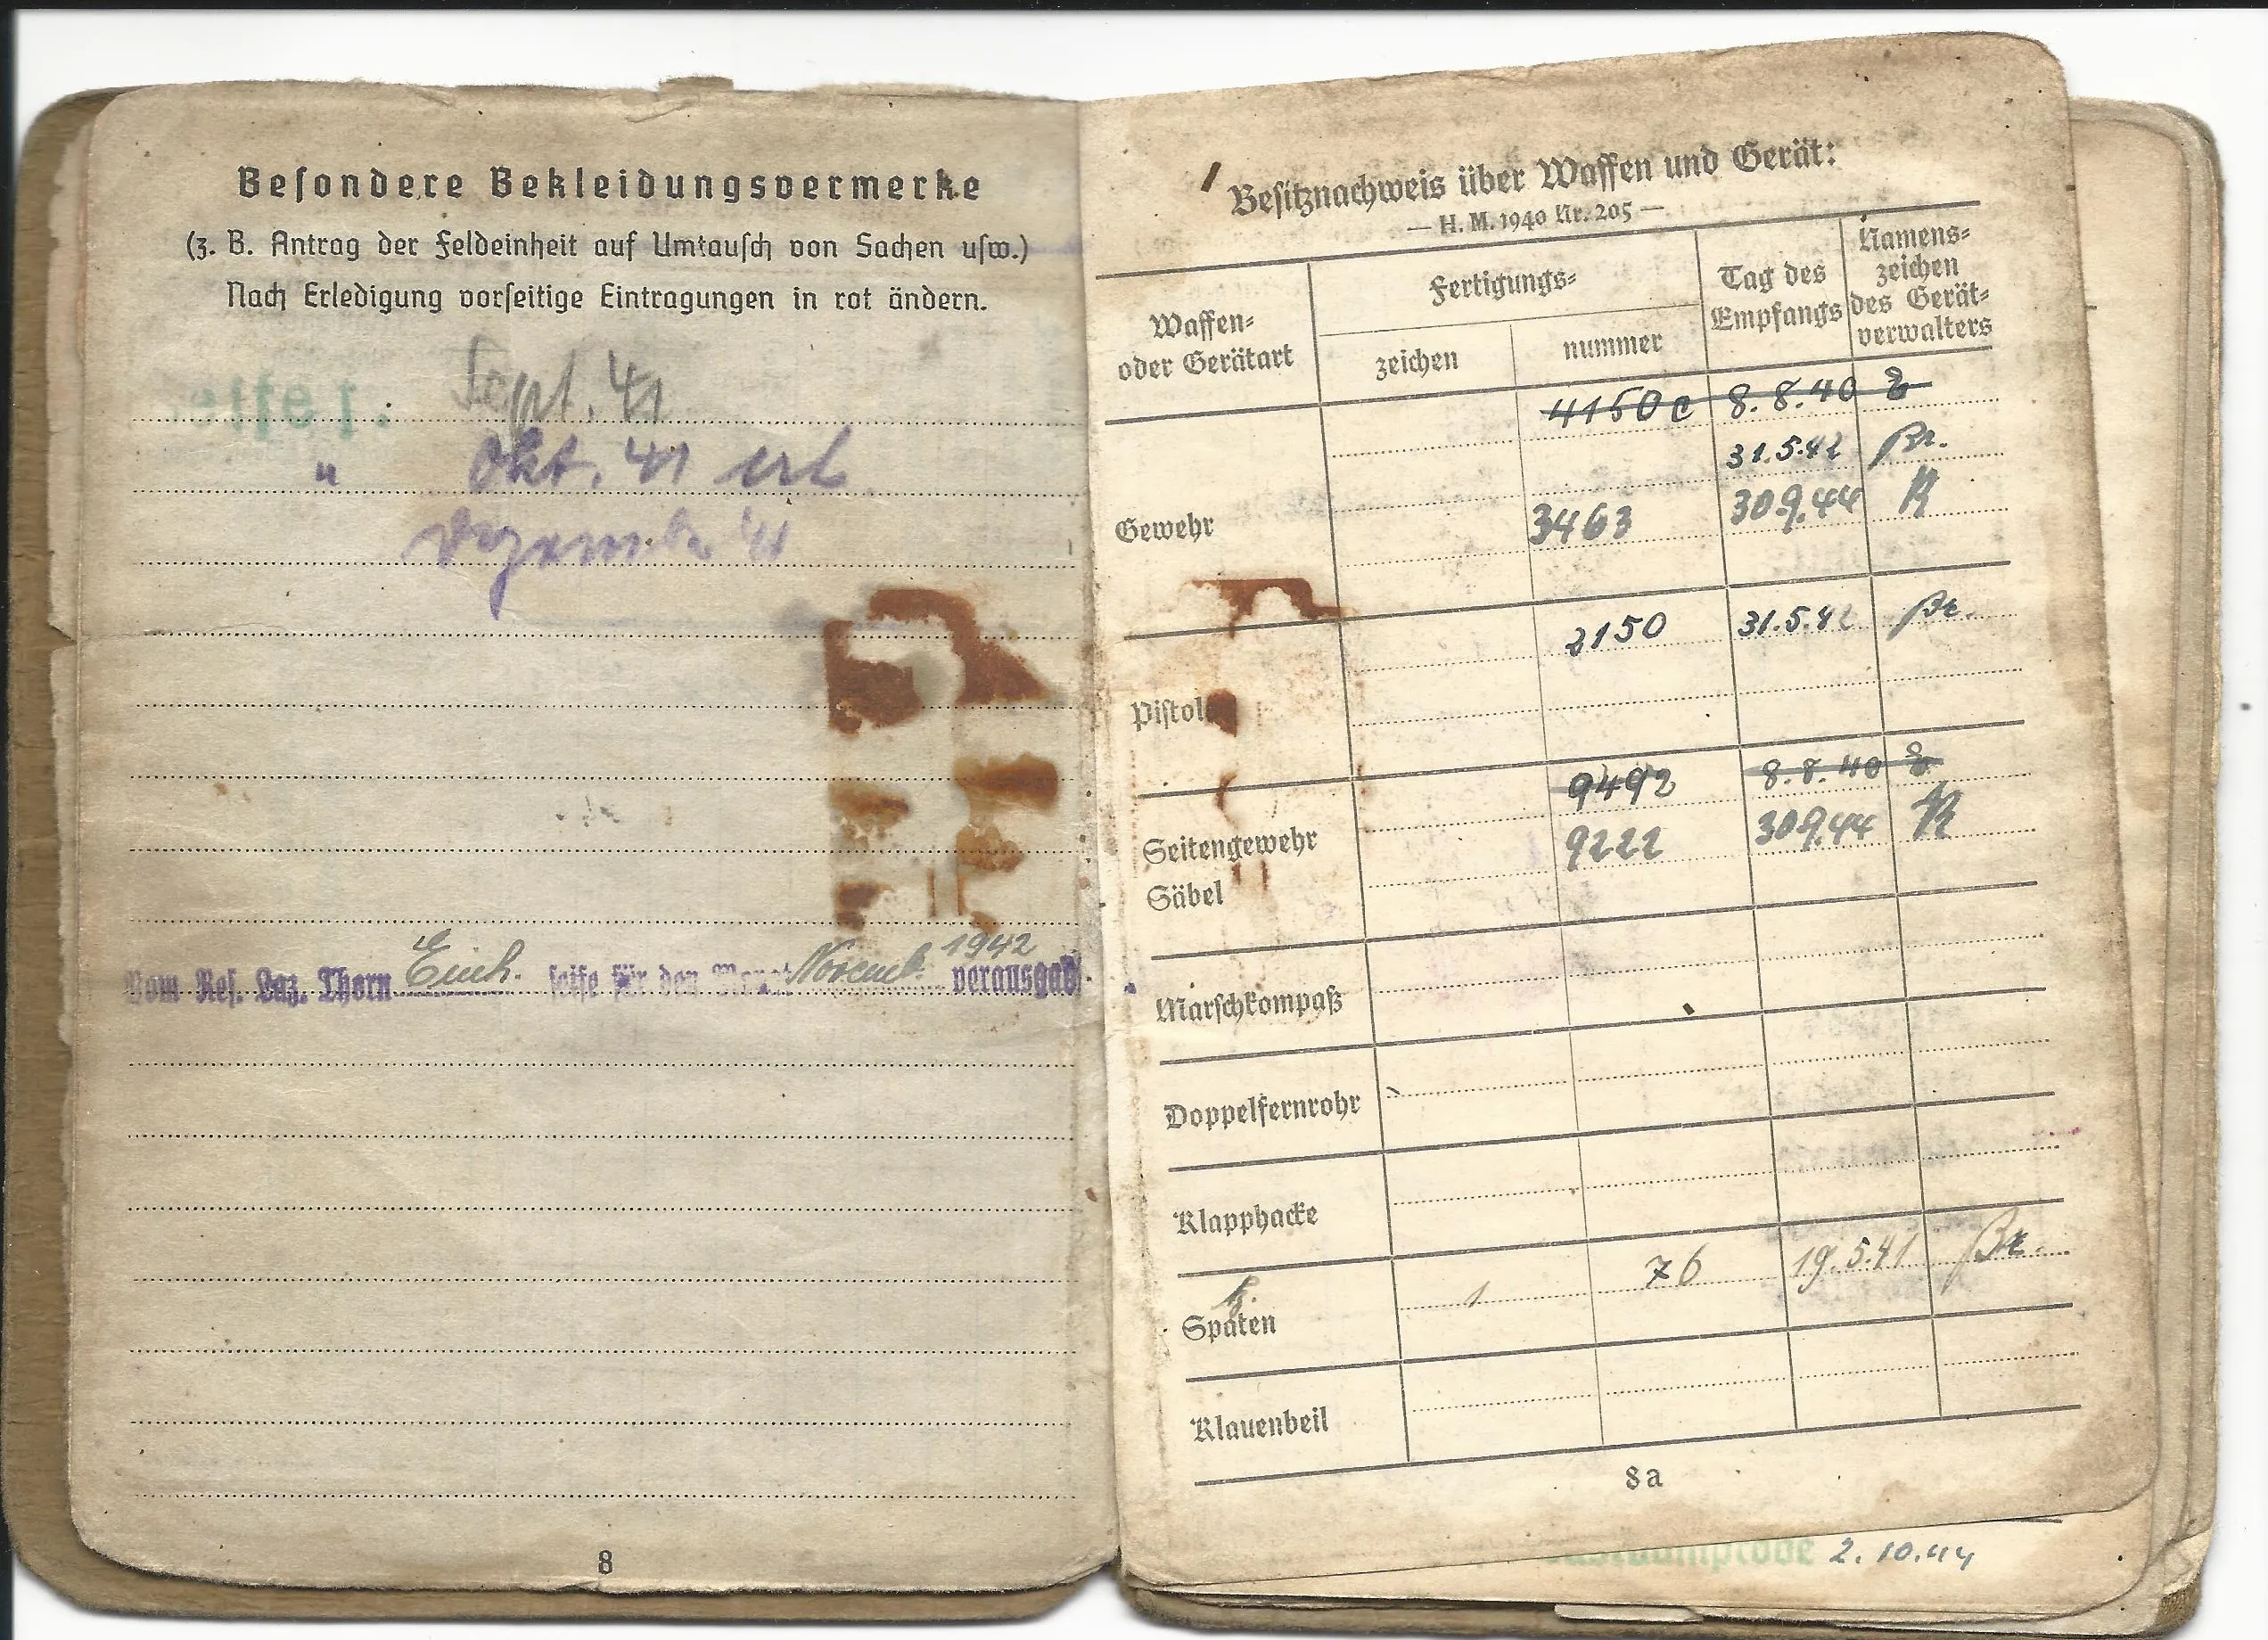 Besondere Bekleidungsvermerke
(z. B. Antrag der Feldeinheit auf Umtausch von Sachen usw.)
Nach Erledigung vorseitige Eintragungen in rot ändern.
Sept. 41
" Okt. 41 erl
Dezember 41
Vom Res. Laz. Thorn Einh. seife für den Monat Novemb. 1942 verausgabt
8
Besitznachweis über Waffen und Gerät:
— H. M. 1940 Nr. 205 —
Waffen- oder Gerätart
Fertigungs-
zeichen
nummer
Tag des Empfangs
Namens- zeichen des Gerät- verwalters
4150 c 8.8.40
31.5.42 Br.
Gewehr 3463 30.9.44 R
Pistole 2150 31.5.42 Br.
9492 8.8.40
Seitengewehr 9222 30.9.44 R
Säbel
Marschkompaß
Doppelfernrohr
Klapphacke
k. Spaten 1 76 19.5.41 Br.
Klauenbeil
8a
2.10.44